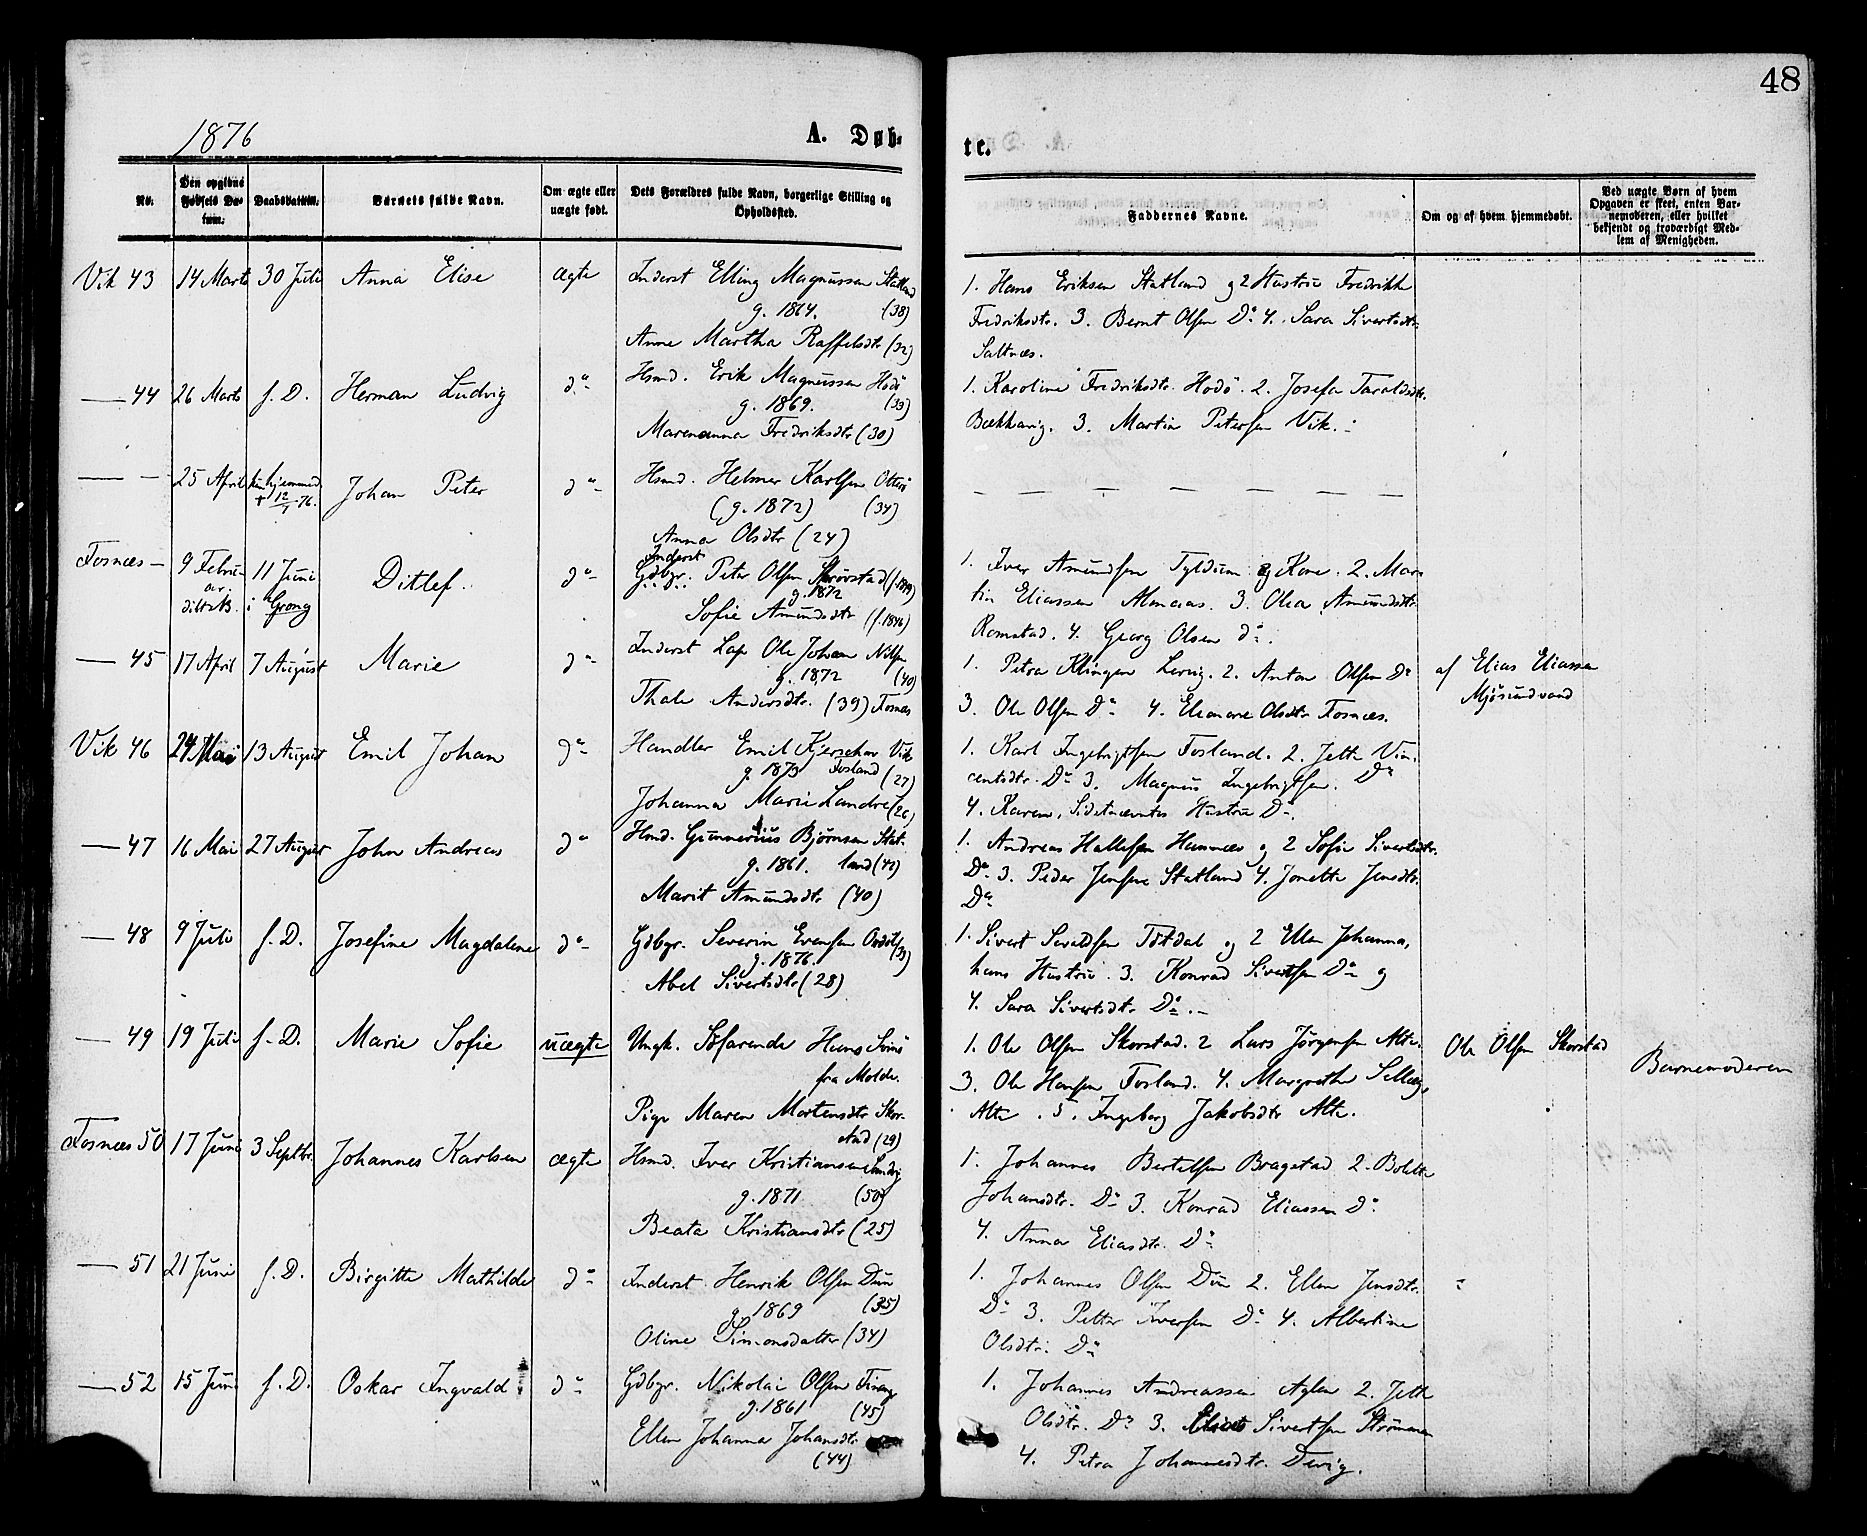 48
1876
A. Døb-
te.
No.
Den opgivne Fødsels Datum.
Daabsdatum.
Barnets fulde Navn.
Om ægte eller uægte født.
Dets Forældres fulde Navn, borgerlige Stilling og Opholdsted.
Faddernes Navne.
Om og af hvem hjemmedøbt.
Ved uægte Børn af hvem Opgaven er skeet, enten Barnemoderen, eller hvilket bekjendt og troværdigt Medlem af Menigheden.
Vik 43 14 Marts 30 Juli Anna Elise ægte
Inderst Elling Magnussen Statland
g. 1864. (38)
Anne Martha Raffelsdtr (32)
1. Hans Eriksen Statland og 2 Hustru Fredrikke
Fredriksdtr. 3. Bernt Olsen Do 4. Sara Sivertsdtr
Saltnæs.
— 44 26 Marts s. D. Herman Ludvig do
Hsmd. Erik Magnussen Hodø
g. 1869. (33)
Marenanna Fredriksdtr (30)
1. Karoline Fredriksdtr. Hodø. 2. Josefa Taraldsdtr.
Bækkavig. 3. Martin Petersen Vik.
— — 25 April hjemmed. † 12/5 76. Johan Peter do
Hsmd. Helmer Karlsen Otterø
(g. 1872) (34)
Anna Olsdtr (24)
— — — — — — —
Fosnæs — 9 Februar 11 Juni i Grong Ditlef. do
Inderst
Gdbgr. Peter Olsen
g. 1872
Sofie Amundsdtr (f. 1846)
1. Iver Amundsen Tyldum og Kone. 2. Mar-
tin Eliassen Almaas. 3. Olea Amundsdtr
Romstad. 4. Georg Olsen do.
— 45 17 April 7 August Marie do
Inderst Lap Ole Johan Nilsen
g. 1872 (40)
Thale Andersdtr. (39) Fosnæs
1. Petra Klingen Lervig. 2. Anton Olsen Do
3. Ole Olsen Do 4. Eleonore Olsdtr Fosnæs.
af Elias Eliassen
Mjøsundvand
Vik 46 24 Mai 13 August Emil Johan do
Handler Emil Kjerschow Vik
g. 1873 Fosland (27)
Johanna Marie Landre (26)
1. Karl Ingebrigtsen Fosland. 2. Jette Vin-
centsdtr. Do 3. Magnus Ingebrigtsen. Do
4. Karen, Sidstnævntes Hustru Do.
— 47 16 Mai 27 August John Andreas do
Hsmd. Gunnerius Bjørnsen Stat-
g. 1861. land (42)
Marit Amundsdtr (40)
1. Andreas Hallesen Hemnæs og 2 Sofie Sivertsdtr.
Do 3. Peder Jensen Statland 4. Jonette Jensdtr.
Do
— 48 9 Juli s. D. Josefine Magdalene do
Gdbgr. Severin Evensen
g. 1876.
Abel Sivertsdtr (28)
1. Sivert Sivaldsen Tøtdal og 2 Ellen Johanna,
hans Hustru. 3. Konrad Sivertsen Do og
4. Sara Sivertsdtr Do.
— 49 19 Juli s. D. Marie Sofie uægte
Ungk. Søfarende Hans
fra Molde.
Pige Maren Mortensdtr Skor-
stad (29)
1. Ole Olsen Skorstad. 2 Lars Jørgensen Alte.
3. Ole Hansen Fosland. 4. Margrethe Sellæg
Alte. 5. Ingeborg Jakobsdtr Alte.
Ole Olsen Skorstad
Barnemoderen
Fosnæs 50 17 Juni 3 Septbr. Johannes Karlsen ægte
Hsmd. Iver Kristiansen Sandvig
g. 1871 (50)
Beata Kristiansdtr (25)
1. Johannes Bertelsen Bragstad 2. Bolette
Johansdtr. Do 3. Konrad Eliassen Do
4. Anna Eliasdtr. Do
— 51 21 Juni s. D. Birgitte Mathilde do
Inderst Henrik Olsen Dun
g. 1869 (35)
Oline Simonsdatter (34)
1. Johannes Olsen Dun 2. Ellen Jensdtr.
Do 3. Petter Iversen Do 4. Albertine
Olsdtr. Do
— 52 15 Juni s. D. Oskar Ingvald do
Gdbgr. Nikolai Olsen
g. 1861 (45)
Ellen Johanna Johansdtr.
(44)
1. Johannes Andreassen Aglen 2. Jette
Olsdtr. Do 3. Sivertsen Strømmen
4. Petra Johannesdtr. Devig.